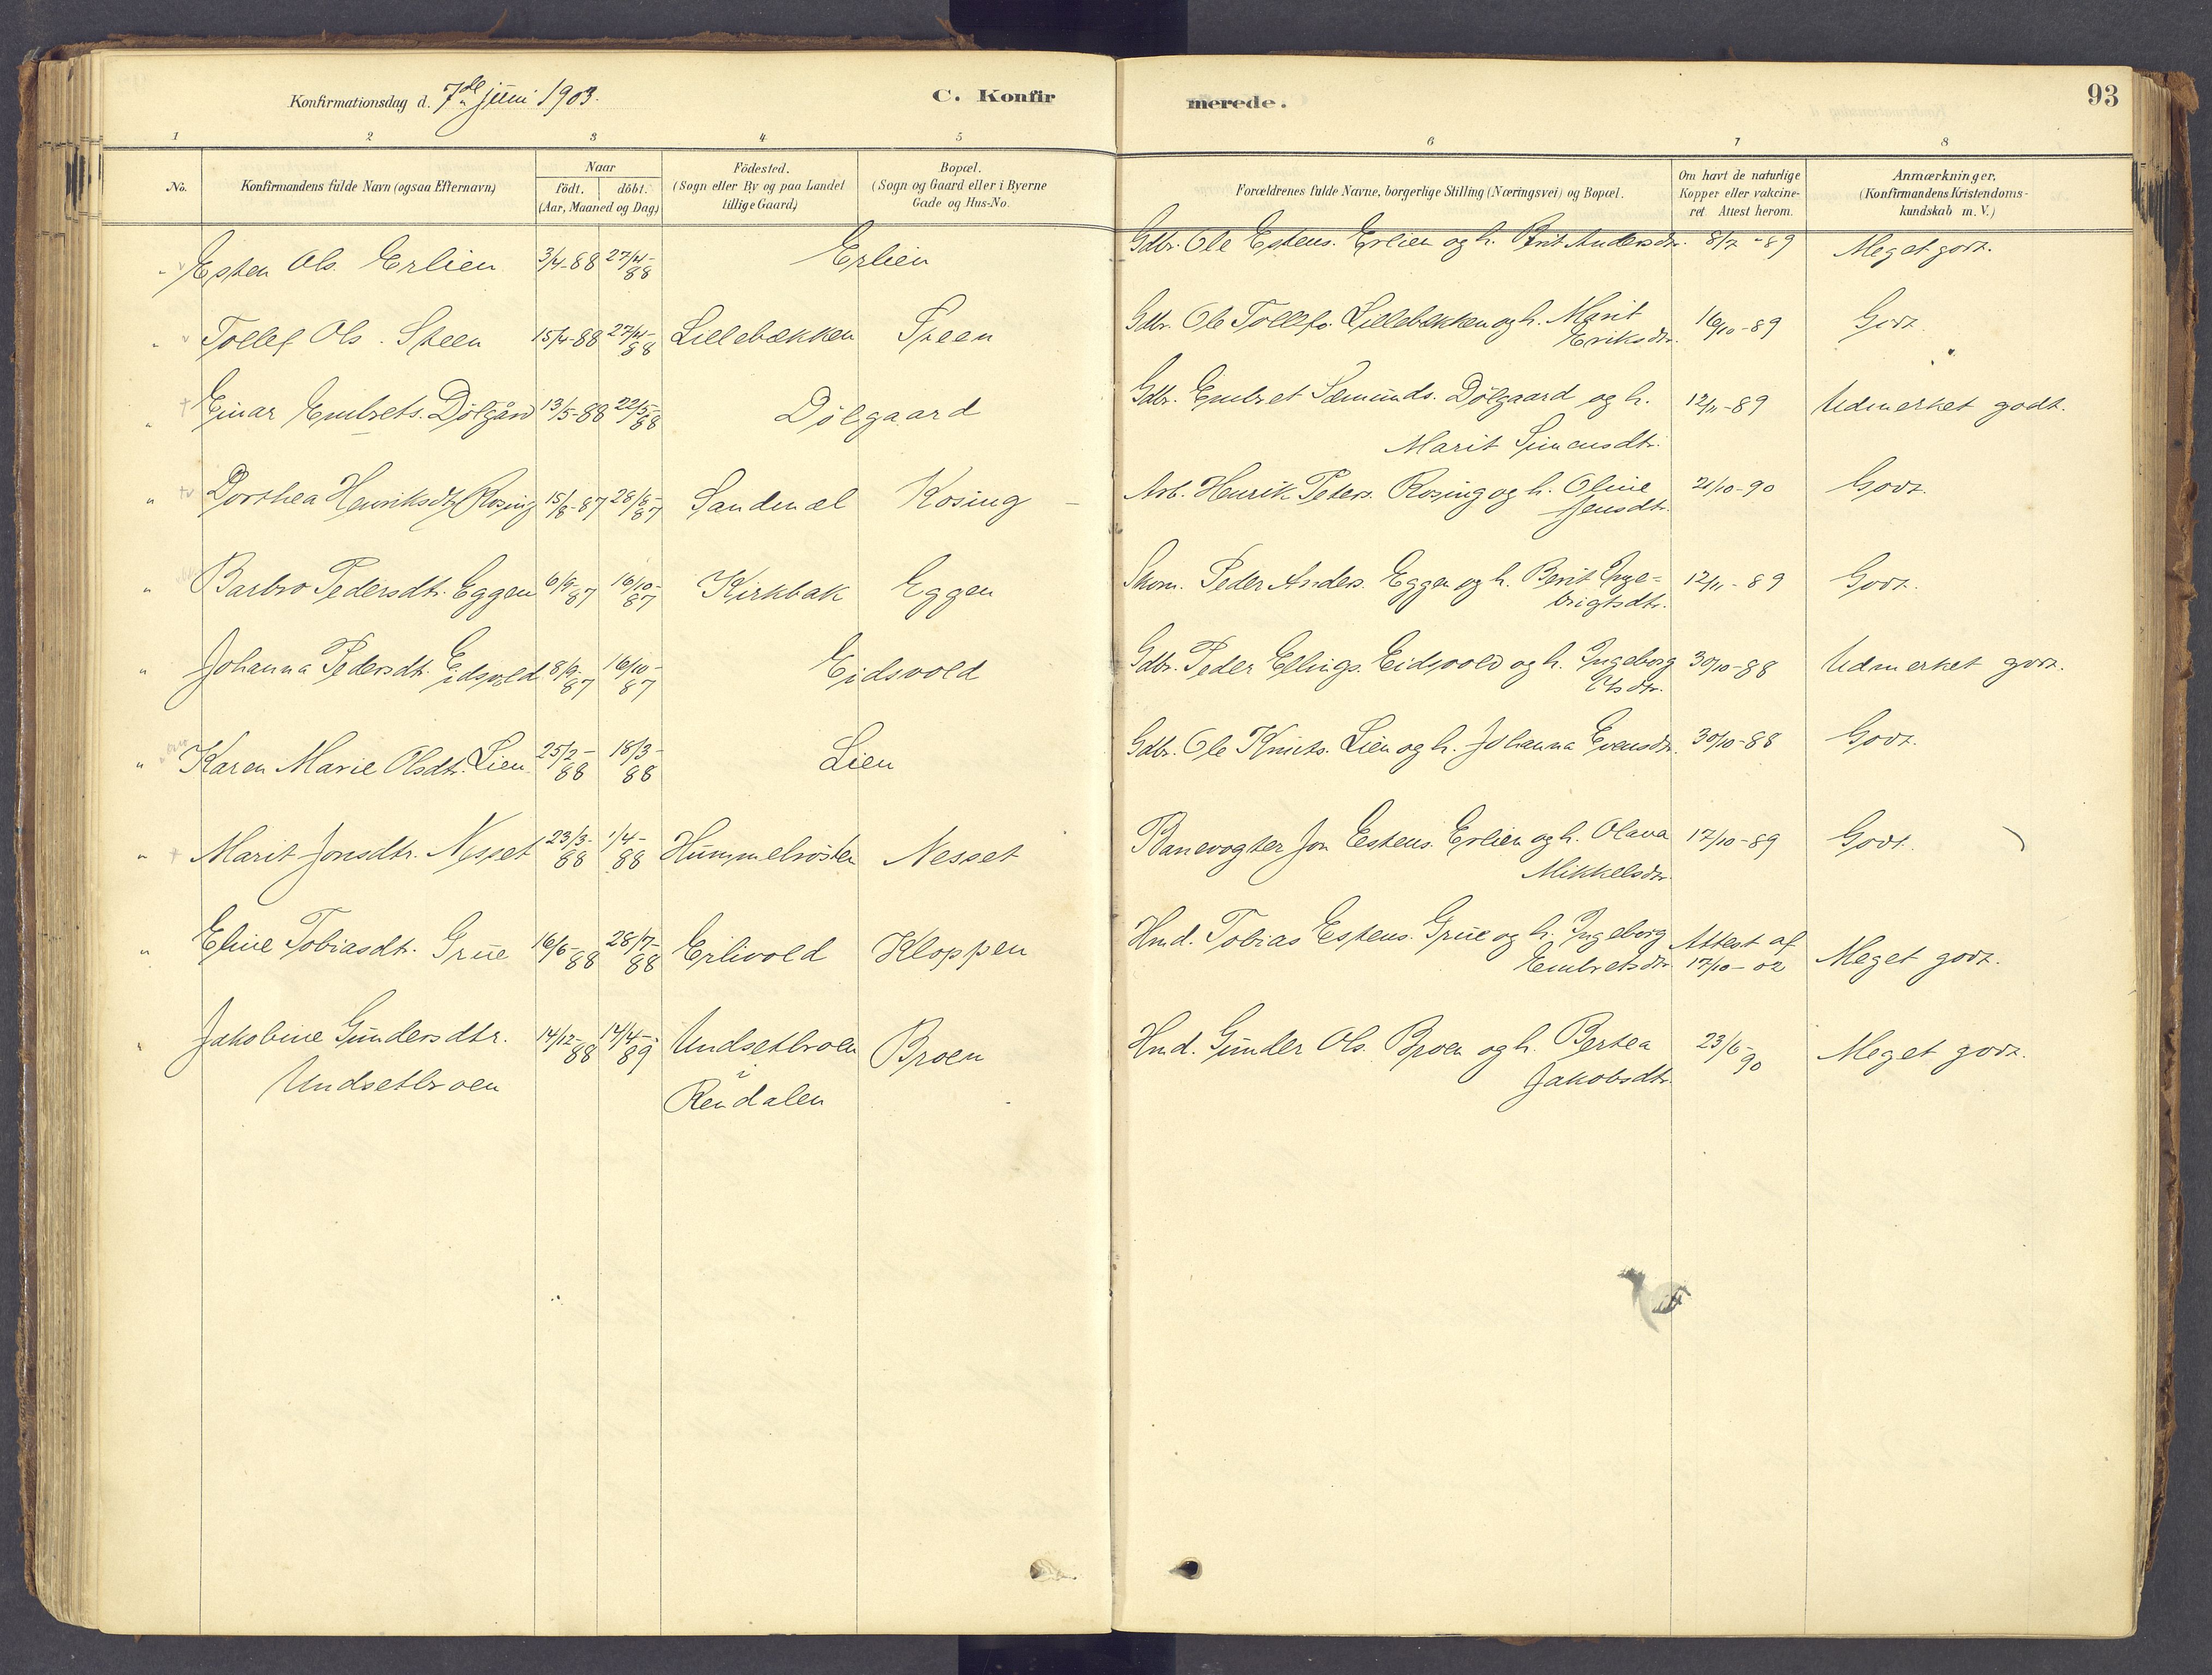 Konfirmationsdag d. 7de juni 1903.
C. Konfirmerede.
93
1 2 3 4 5 6 7 8
No.
Konfirmandens fulde Navn (ogsaa Efternavn)
Naar
födt. döbt.
(Aar, Maaned og Dag)
Födested.
(Sogn eller By og paa Landet
tillige Gaard)
Bopæl.
(Sogn og Gaard eller i Byerne
Gade og Hus-No.
Forældrenes fulde Navne, borgerlige Stilling (Næringsvei) og Bopæl.
Om havt de naturlige
Kopper eller vakcine-
ret. Attest herom.
Anmærkninger.
(Konfirmandens Kristendoms-
kundskab m. V.)
" Esten Ols. Erlien 3/4-88 27/4-88 Erlien Gdbr. Ole Estens. Erlien og h. Brit Andersdtr. 8/7-89 Meget godt.
" Tollef Ols. Steen 15/4-88 27/4-88 Lillebækken Steen Gdbr. Ole Tollefs. Lillebækken og h. Marit
Eriksdtr. 16/10-89 Godt
" Einar Embrets. Dölgård 13/5-88 22/5-88 Dölgaard Gdbr. Embret Sæmunds. Dölgaard og h.
Marit Simensdtr. 12/11-89 Udmerket godt.
" Dorthea Henriksdtr. Rosing 15/8-87 28/8-87 Sandmæl Rosing Arb. Henrik Peters. Rosing og h. Oline
Jensdtr. 21/10-90 Godt.
" Barbro Pedersdtr. Eggen 6/9-87 16/10-87 Kirkbak Eggen Skom. Peder Anders. Eggen og h. Berit Inge-
brigtsdtr. 12/11-89 Godt.
" Johanna Pedersdtr. Eidsvold 8/9-87 16/10-87 Eidsvold Gdbr. Peder Ellings. Eidsvold og h. Ingeborg
Olsdtr. 30/10-88 Udmerket godt.
" Karen Marie Olsdtr. Lien 25/2-88 18/3-88 Lien Gdbr. Ole Knuts. Lien og h. Johanna Evensdtr. 30/10-88 Godt.
" Marit Jonsdtr. Nesset 23/3-88 1/4-88 Hummelvosten Nesset Banevogter Jon Estens. Erlien og h. Olava
Mikkelsdtr. 17/10-89 Godt.
" Eline Tobiasdtr. Grue 16/6-88 28/7-88 Erlivold Kloppen Hmd. Tobias Estens. Grue og h. Ingeborg
Embretsdtr. Attest af
17/10-02 Meget godt.
" Jakobine Gundersdtr.
Undsetbroen 14/12-88 14/4-89 Undsetbroen
i
Rendalen Broen Hmd. Gunder Ols. Broen og h. Bertea
Jakobsdtr. 23/6-90 Meget godt.